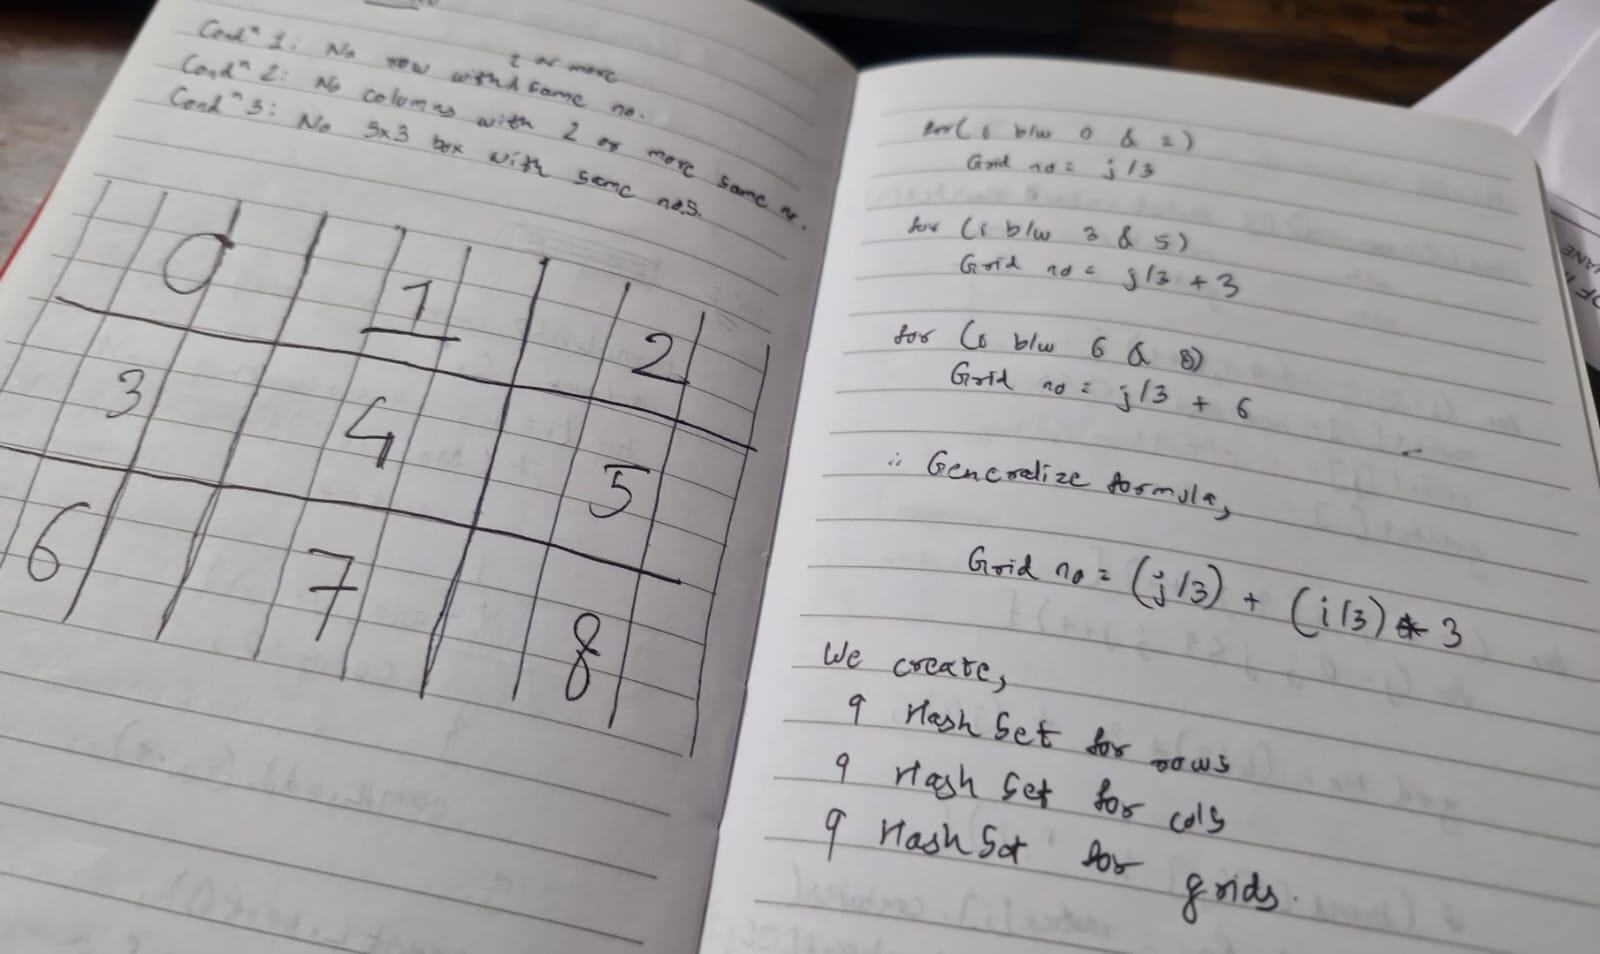 Condⁿ 1: No row with 2 or more same no.
Condⁿ 2: No columns with 2 or more same no.
Condⁿ 3: No 3x3 box with same nos.
0 1 2
3 4 5
6 7 8
for (i b/w 0 & 2)
Grid no = j/3
for (i b/w 3 & 5)
Grid no = j/3 + 3
for (i b/w 6 & 8)
Grid no = j/3 + 6
∴ Generalize formula,
Grid no = (j/3) + (i/3) * 3
We create,
9 Hash Set for rows
9 Hash Set for cols
9 Hash Set for grids.